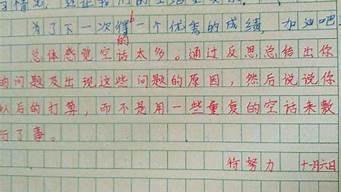 为了下一次得一个优秀的成绩，加油吧
总体感觉空话太多。通过反思总结出你
的问题及出现这些问题的原因，然后说说你
以后的打算，而不是用一些重复的空话来敷
衍了事。
待努力 十一月六日